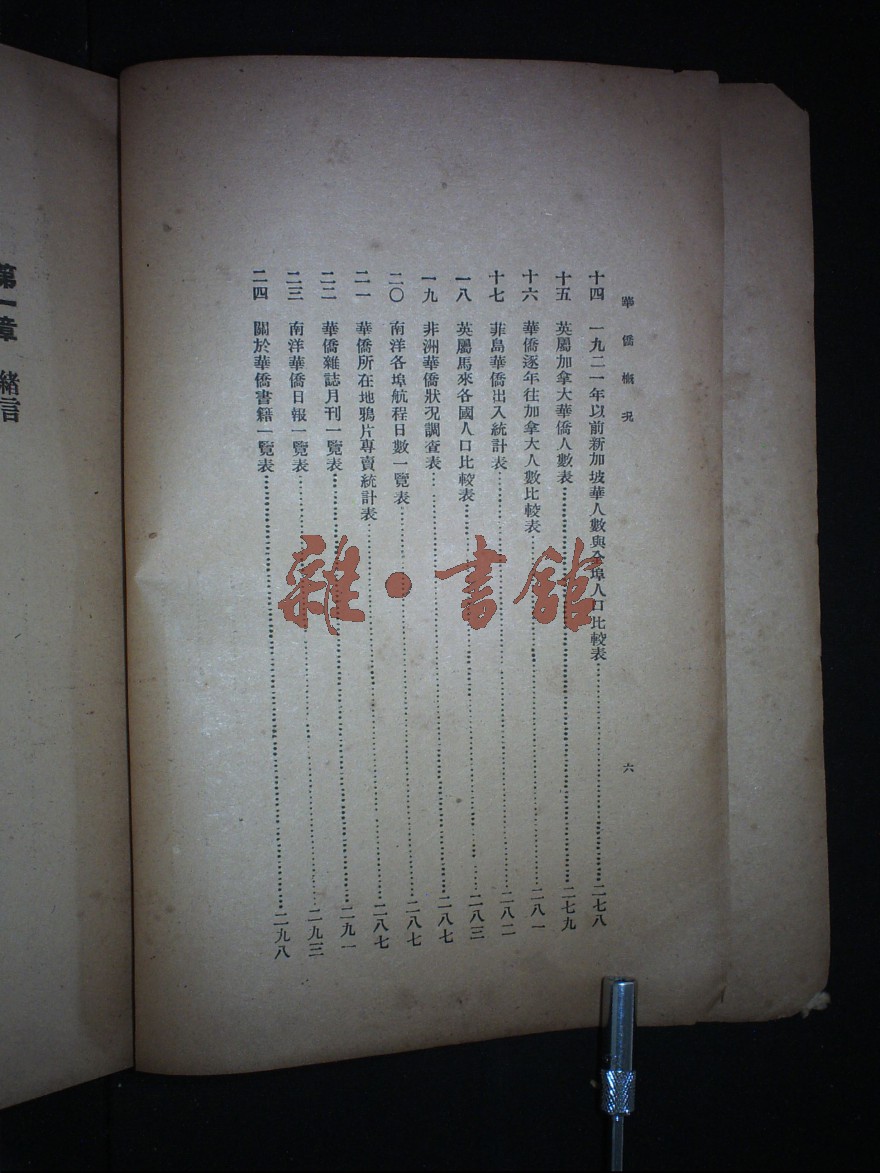 華僑概況
六
十四 一九二一年以前新加坡華人數與全埠人口比較表 二七八
十五 英屬加拿大華僑人數表 二七九
十六 華僑逐年往加拿大人數比較表 二八一
十七 菲島華僑出入統計表 二八二
一八 英屬馬來各國人口比較表 二八三
一九 非洲華僑狀況調查表 二八七
二〇 南洋各埠航程日數一覽表 二八七
二一 華僑所在地鴉片專賣統計表 二八七
二二 華僑雜誌月刊一覽表 二九一
二三 南洋華僑日報一覽表 二九三
二四 關於華僑書籍一覽表 二九八
第一章 緒言
雜·書館